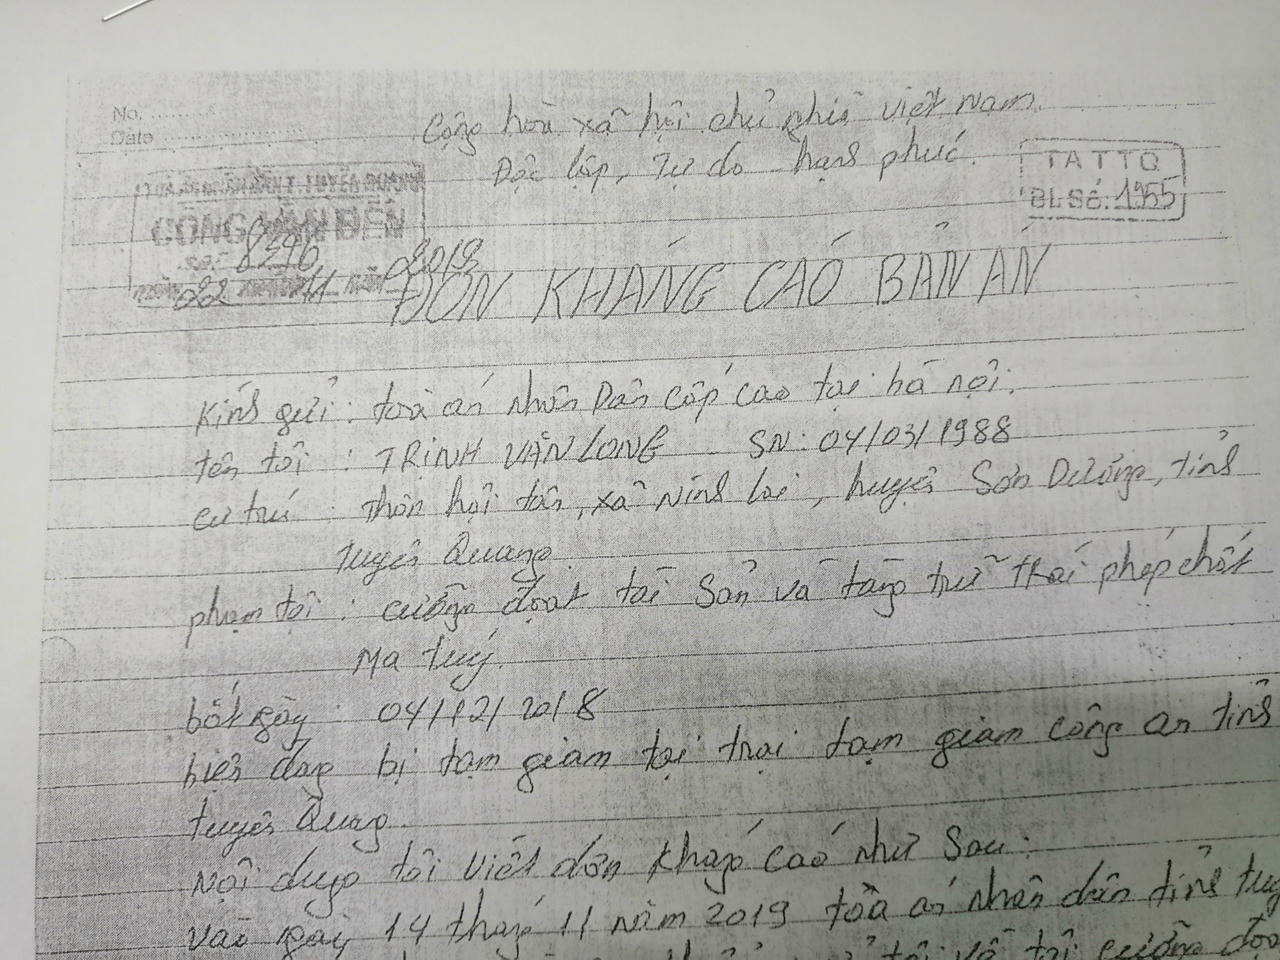 No.
Date
Cộng hoà xã hội chủ nghĩa việt Nam.
Độc lập, Tự do hạnh phúc.
TATTQ
BLSố: 1955
CÔNG VĂN ĐẾN
SỐ: 8296
22 11 2019
ĐƠN KHÁNG CÁO BẢN ÁN
Kính gửi : toà án Nhân Dân Cấp Cao tại hà nội.
tên tôi : TRỊNH VĂN LONG SN: 04/03/1988
cư trú : thôn hội tân, xã Ninh lai, huyện Sơn Dương, tỉnh
tuyên Quang.
phạm tội : cưỡng đoạt tài Sản và tàng trữ trái phép chất
Ma tuý.
bắt ngày : 04/12/2018
hiện đang bị tạm giam tại trại tạm giam công an tỉnh
tuyên Quang.
Nội dung tôi viết đơn kháng cáo như Sau:
Vào ngày 14 tháng 11 năm 2019 toà án nhân dân tỉnh
tôi về tội cưỡng